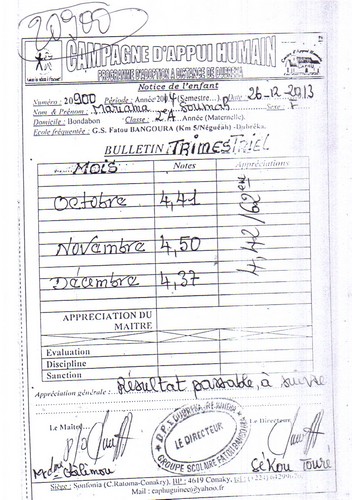 20900
CAMPAGNE D'APPUI HUMAIN
PROGRAMME D'ADOPTION A DISTANCE DE DUBREKA
Notice de l'enfant
Numéro: 20900 Période: Année 2014 (Semestre...) Date 26-12-2013
Nom & Prénom: Mariama Soumah Sexe: F
Domicile: Bondabon Classe: 2e A. Année (Maternelle).
Ecole fréquentée: G.S. Fatou BANGOURA (Km 5/Néguéah) -Dubréka.
BULLETIN TRIMESTRIEL
MOIS Notes Appréciations
Octobre 4,41
4,42/62en
Novembre 4,50
Décembre 4,37
APPRECIATION DU
MAITRE
Evaluation
Discipline
Sanction
Appréciation générale: Résultat passable, à suivre
Le Maître Le Directeur
LE DIRECTEUR
GROUPE SCOLAIRE FATOU BANGOURA
Sékou Touré
Siège: Sonfonia (C.Ratoma-Conakry), BP: 4619 Conakry,
Mail: caphuguineco@yahoo.fr